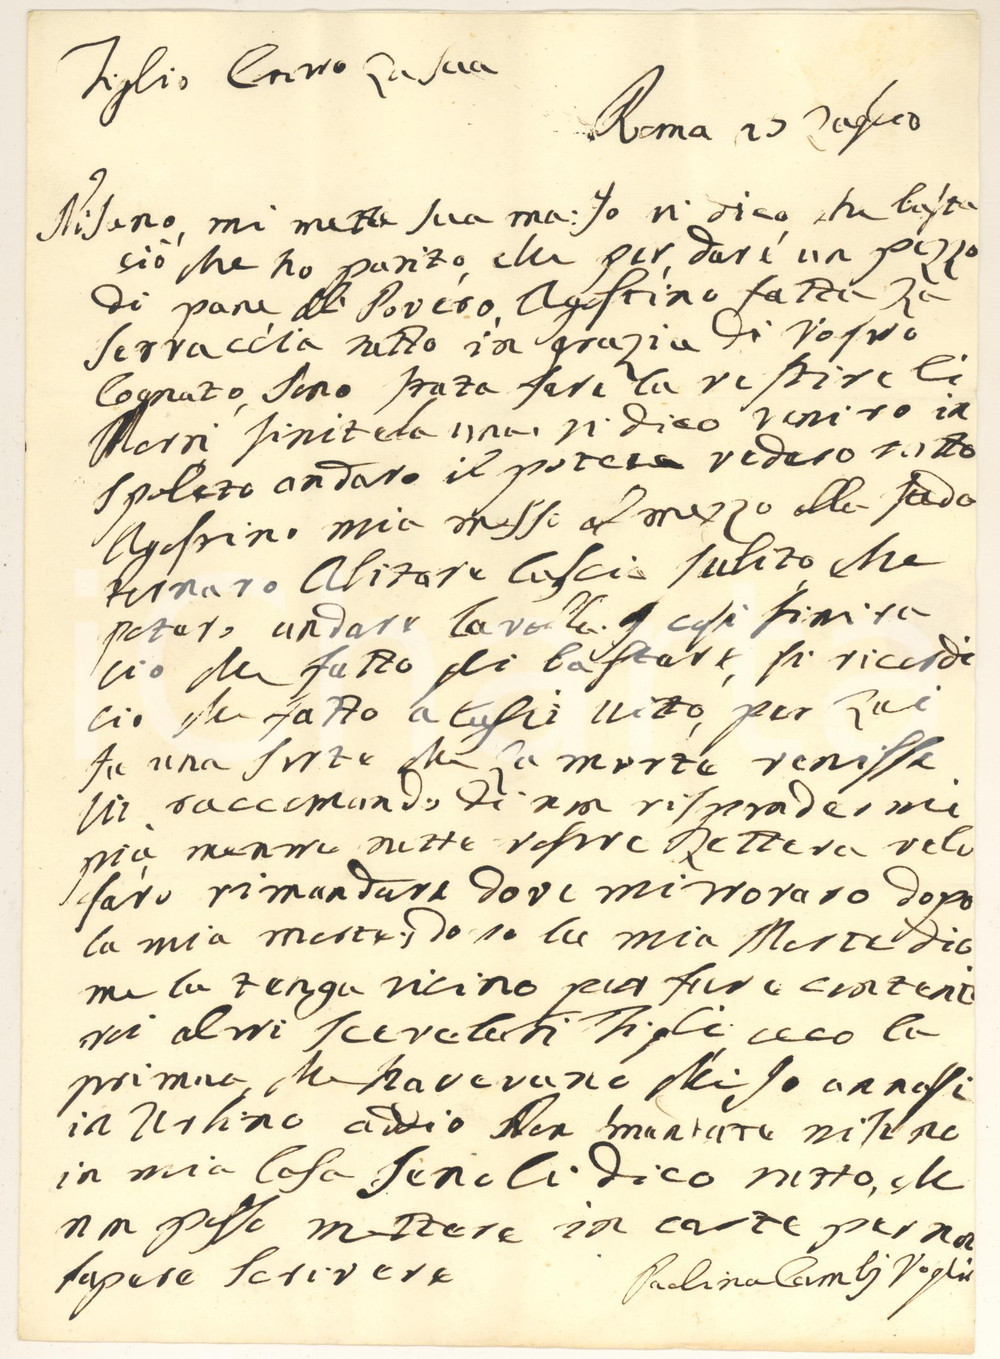 Figlio Carro La sua
Roma 23 Luglio
Nisuno, mi mette sua ma: Io vi dico, che basta
ciò che ho patito, che per dare un pezzo
di pane al Povero, Agostino fatta La
Serraccia tutto in grazia di Vostro
Cognato, Sono stata fare la vestire li
Morti finitela una vi dico veniro in
Spoleto andaro il potere vedero tutto
Agostino mia messo al mezzo alla strada
tornaro Abitare Cascia subito, che
potaro andare così finira
cio che fatto gli bastare, si ricordi
cio che fatto a tutto, per Lui
fu una sorte che La morte venisse
Vi raccomando di non rispondermi
più mentre tutte vostre Lettera velo
faro rimandare dove mi trovaro dopo
la mia morte, do so la mia Morte dio
me la tenga vicino per fare contenti
voi altri scelerati Figli ecco la
prima, che havevano che Io annassi
in Urbino addio Non mantate nisuno
in mia Casa Seno li dico tutto, che
non posso mettere in carte per non
sapere scrivere
Paolina Cambi Voglia